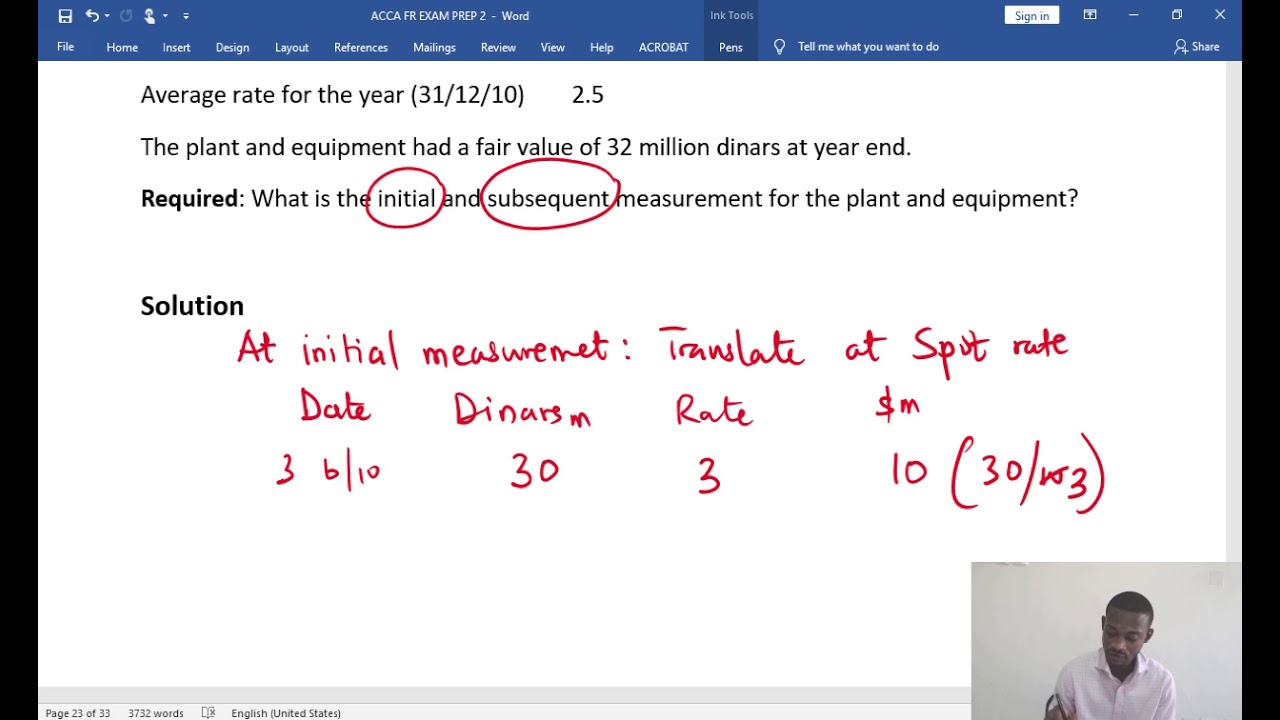 ACCA FR EXAM PREP 2 - Word
Ink Tools
Sign in
File Home Insert Design Layout References Mailings Review View Help ACROBAT Pens Tell me what you want to do Share
Average rate for the year (31/12/10) 2.5
The plant and equipment had a fair value of 32 million dinars at year end.
Required: What is the initial and subsequent measurement for the plant and equipment?
Solution
At initial measuremet: Translate at Spot rate
Date Dinars m Rate $m
3 6/10 30 3 10 (30/3)
Page 23 of 33 3732 words English (United States)